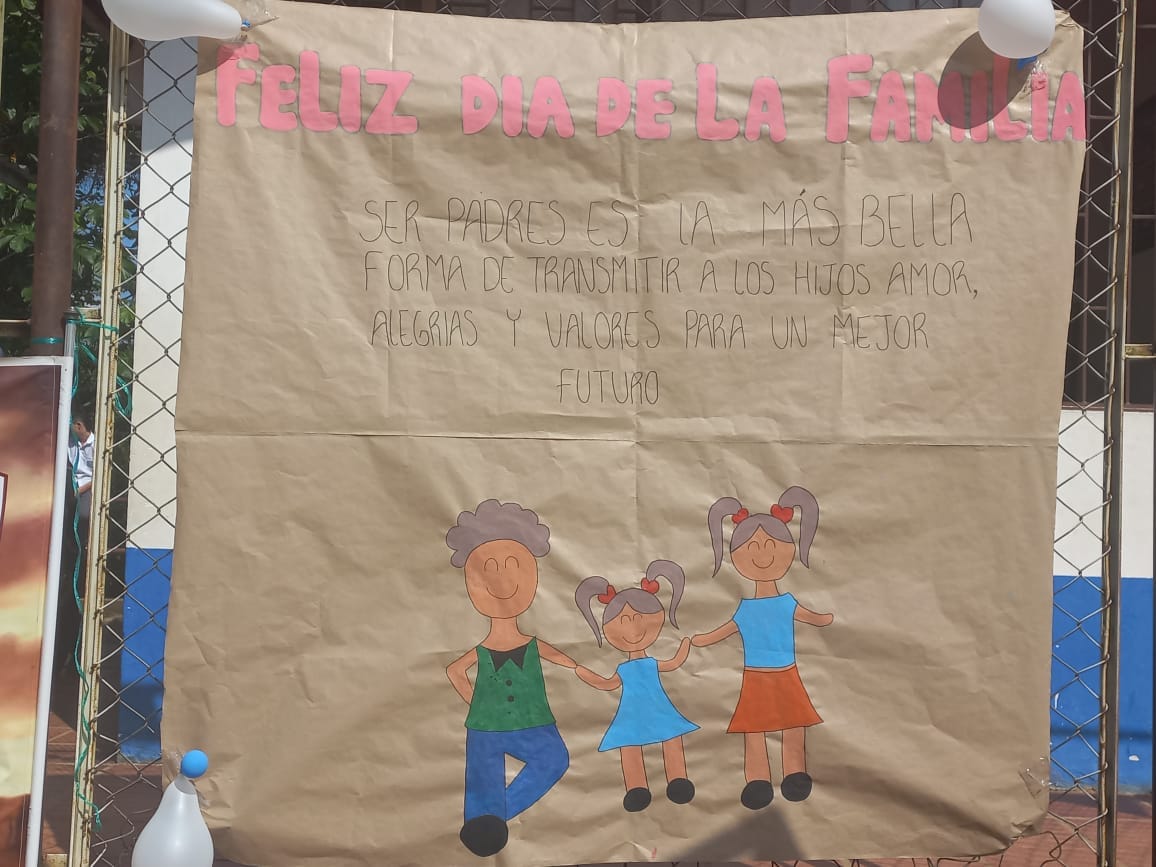 FELIZ DIA DE LA FAMILIA
SER PADRES ES LA MÁS BELLA
FORMA DE TRANSMITIR A LOS HIJOS AMOR,
ALEGRIAS Y VALORES PARA UN MEJOR
FUTURO